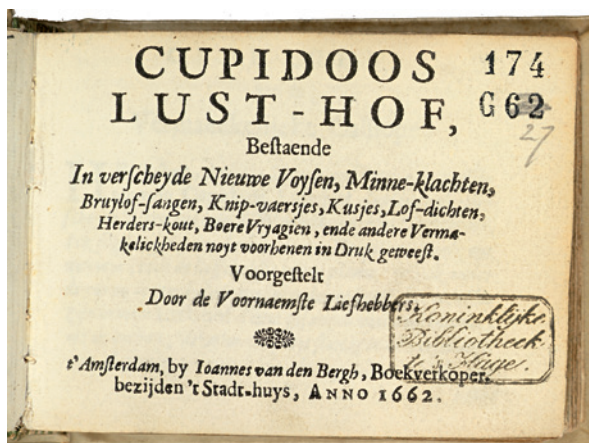 CUPIDOOS
174
LUST-HOF,
G62
27
Bestaende
In verscheyde Nieuwe Voysen, Minne-klachten,
Bruylof-sangen, Knip-vaersjes, Kusjes, Lof-dichten,
Herders-kout, Boere Vryagien, ende andere Verma-
kelickheden noyt voorhenen in Druk geweest.
Voorgestelt
Door de Voornaemste Liefhebbers.
Koninklijke
Bibliotheek
te 's Hage.
t'Amsterdam, by Ioannes van den Bergh, Boekverkoper,
bezijden 't Stadt-huys, ANNO 1662.